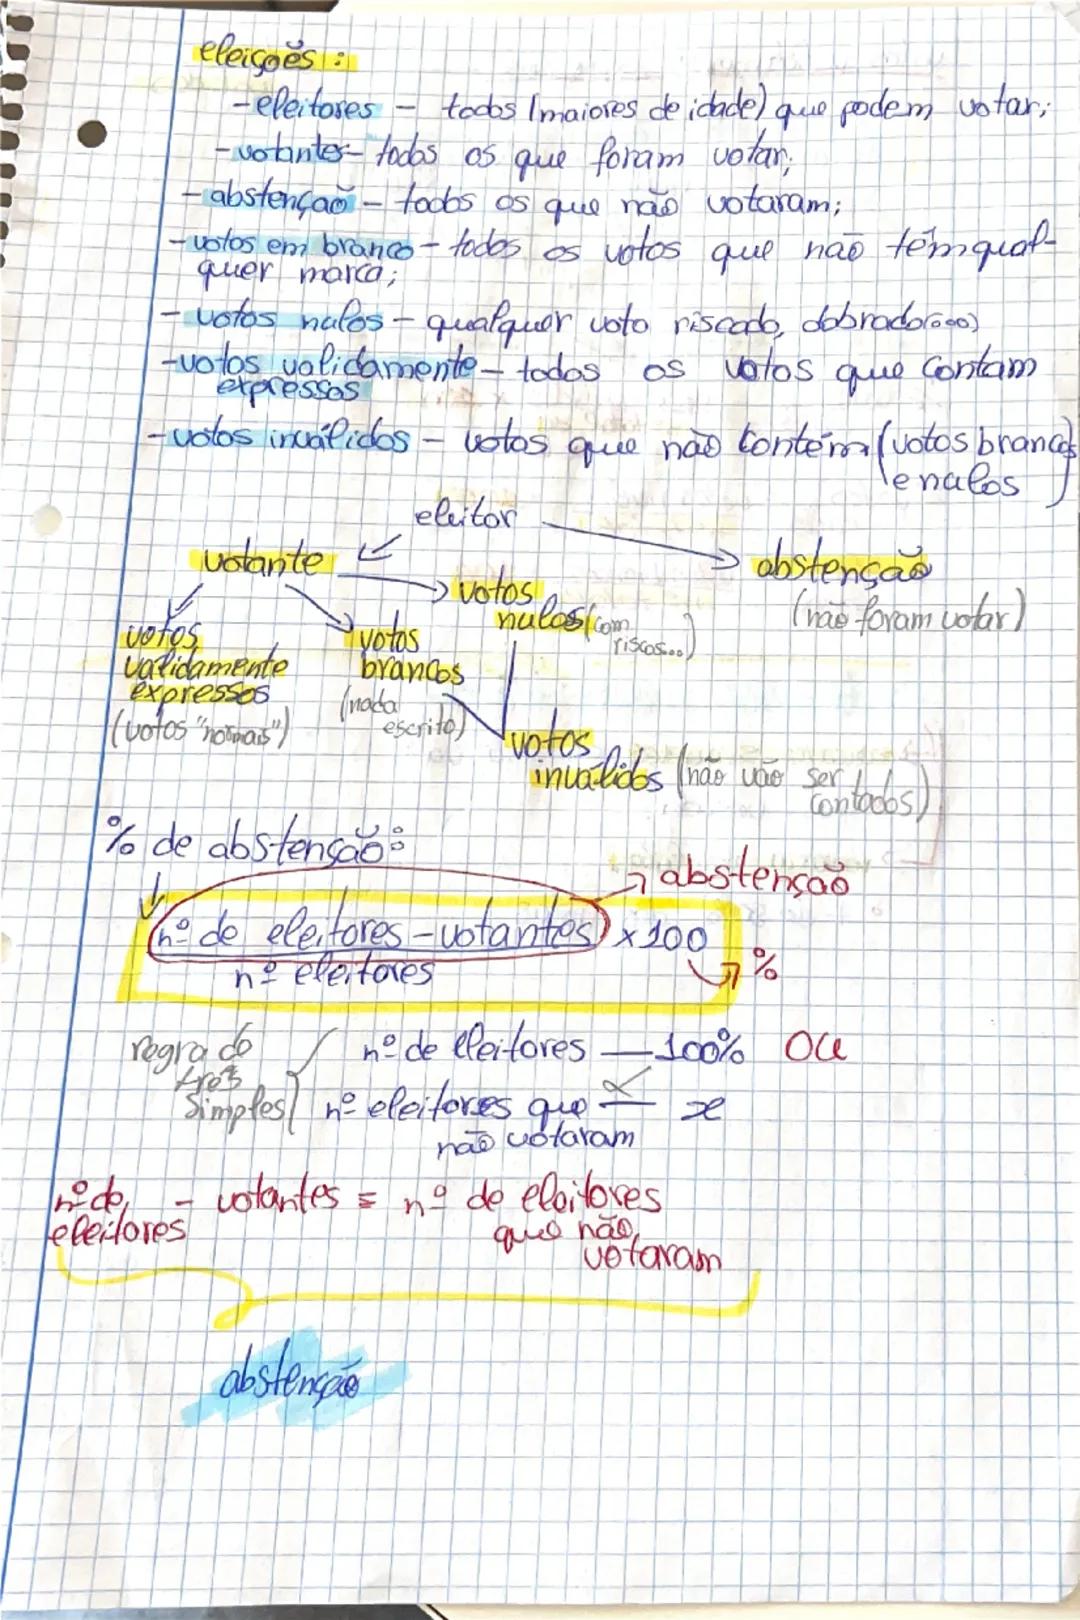 eleições:
- eleitores - todos (maiores de idade) que podem votar;
- votantes - todos os que foram votar;
- abstenção - todos os que não votaram;
- votos em branco - todos os votos que não têm qual-
quer marca;
- votos nulos - qualquer voto riscado, dobrado(...)
- votos validamente - todos os votos que contam
expressos
- votos inválidos - votos que não contém (votos brancos
e nulos)
eleitor
votante
abstenção
(não foram votar)
votos
nulos (com
riscos...)
votos
validamente
expressos
(votos "normais")
votos
brancos
(nada
escrito)
votos
inválidos (não vão ser
contados)
% de abstenção:
abstenção
nº de eleitores - votantes x 100
nº eleitores
%
regra de
três
simples
nº de eleitores — 100% ou
nº eleitores que — x
não votaram
nº de - votantes = nº de eleitores
eleitores
que não
votaram
abstenção